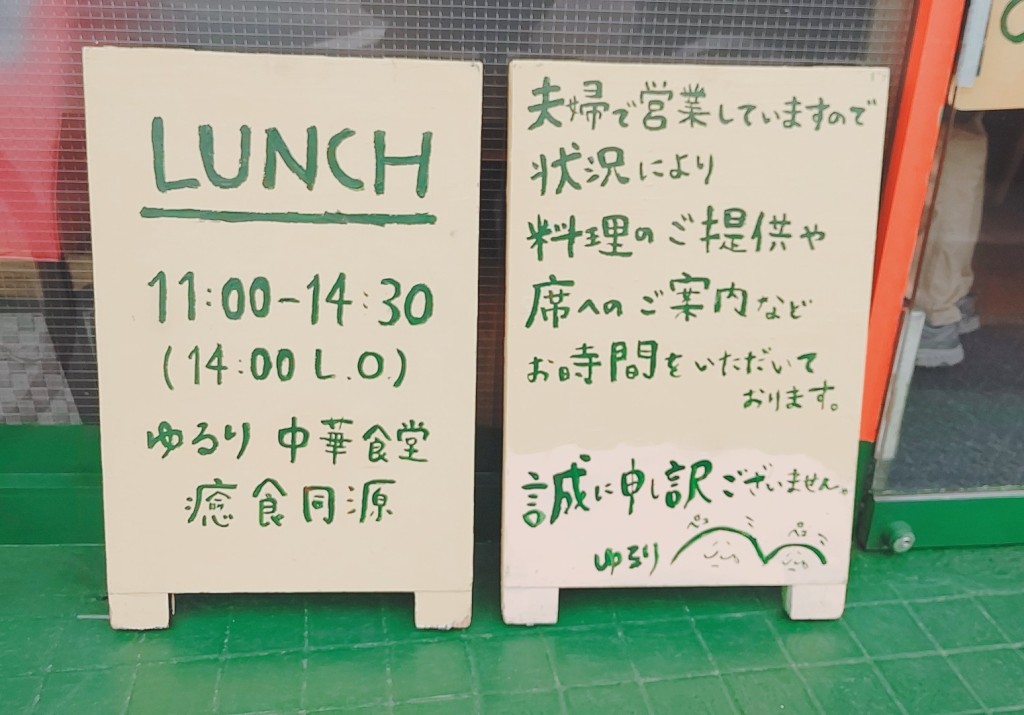 LUNCH
11:00-14:30
(14:00 L.O.)
ゆるり 中華食堂
癒食同源
夫婦で営業していますので
状況により
料理のご提供や
席へのご案内など
お時間をいただいて
おります。
誠に申し訳ございません。
ペコ ペコ
ゆるり